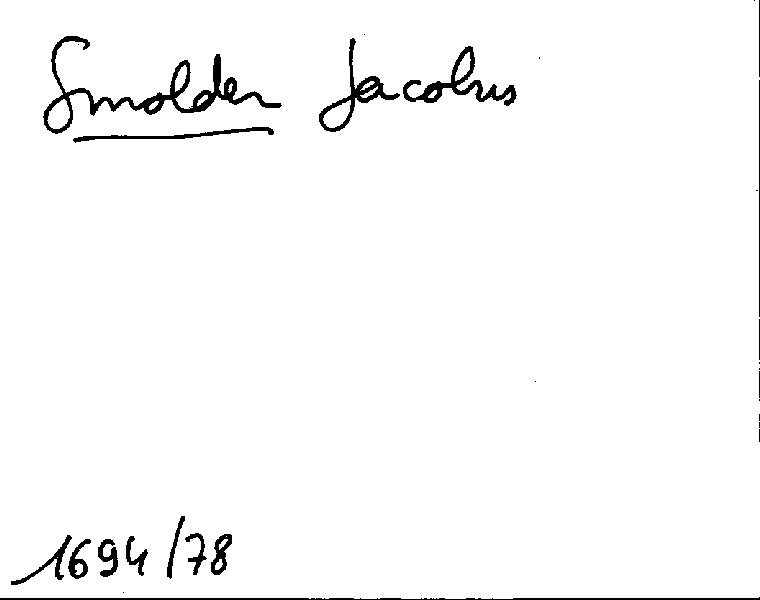 Smolder Jacobus
1694/78